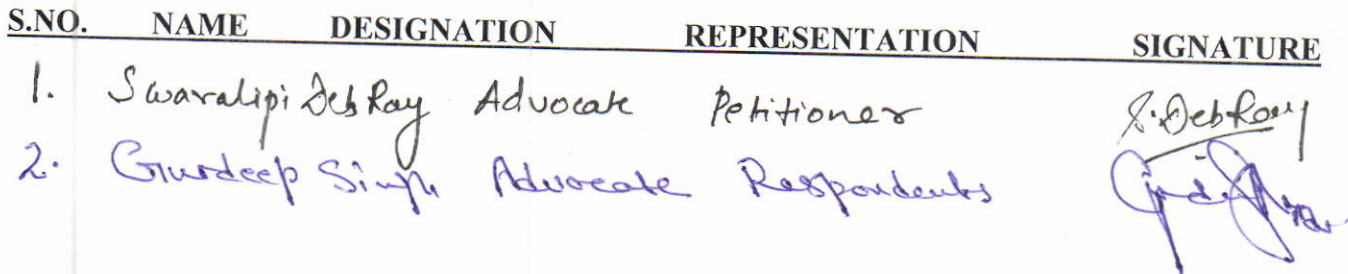 S.NO. NAME DESIGNATION REPRESENTATION SIGNATURE
1. Swaralipi Deb Ray Advocate Petitioner S. Deb Roy
2. Gurdeep Singh Advocate Respondents